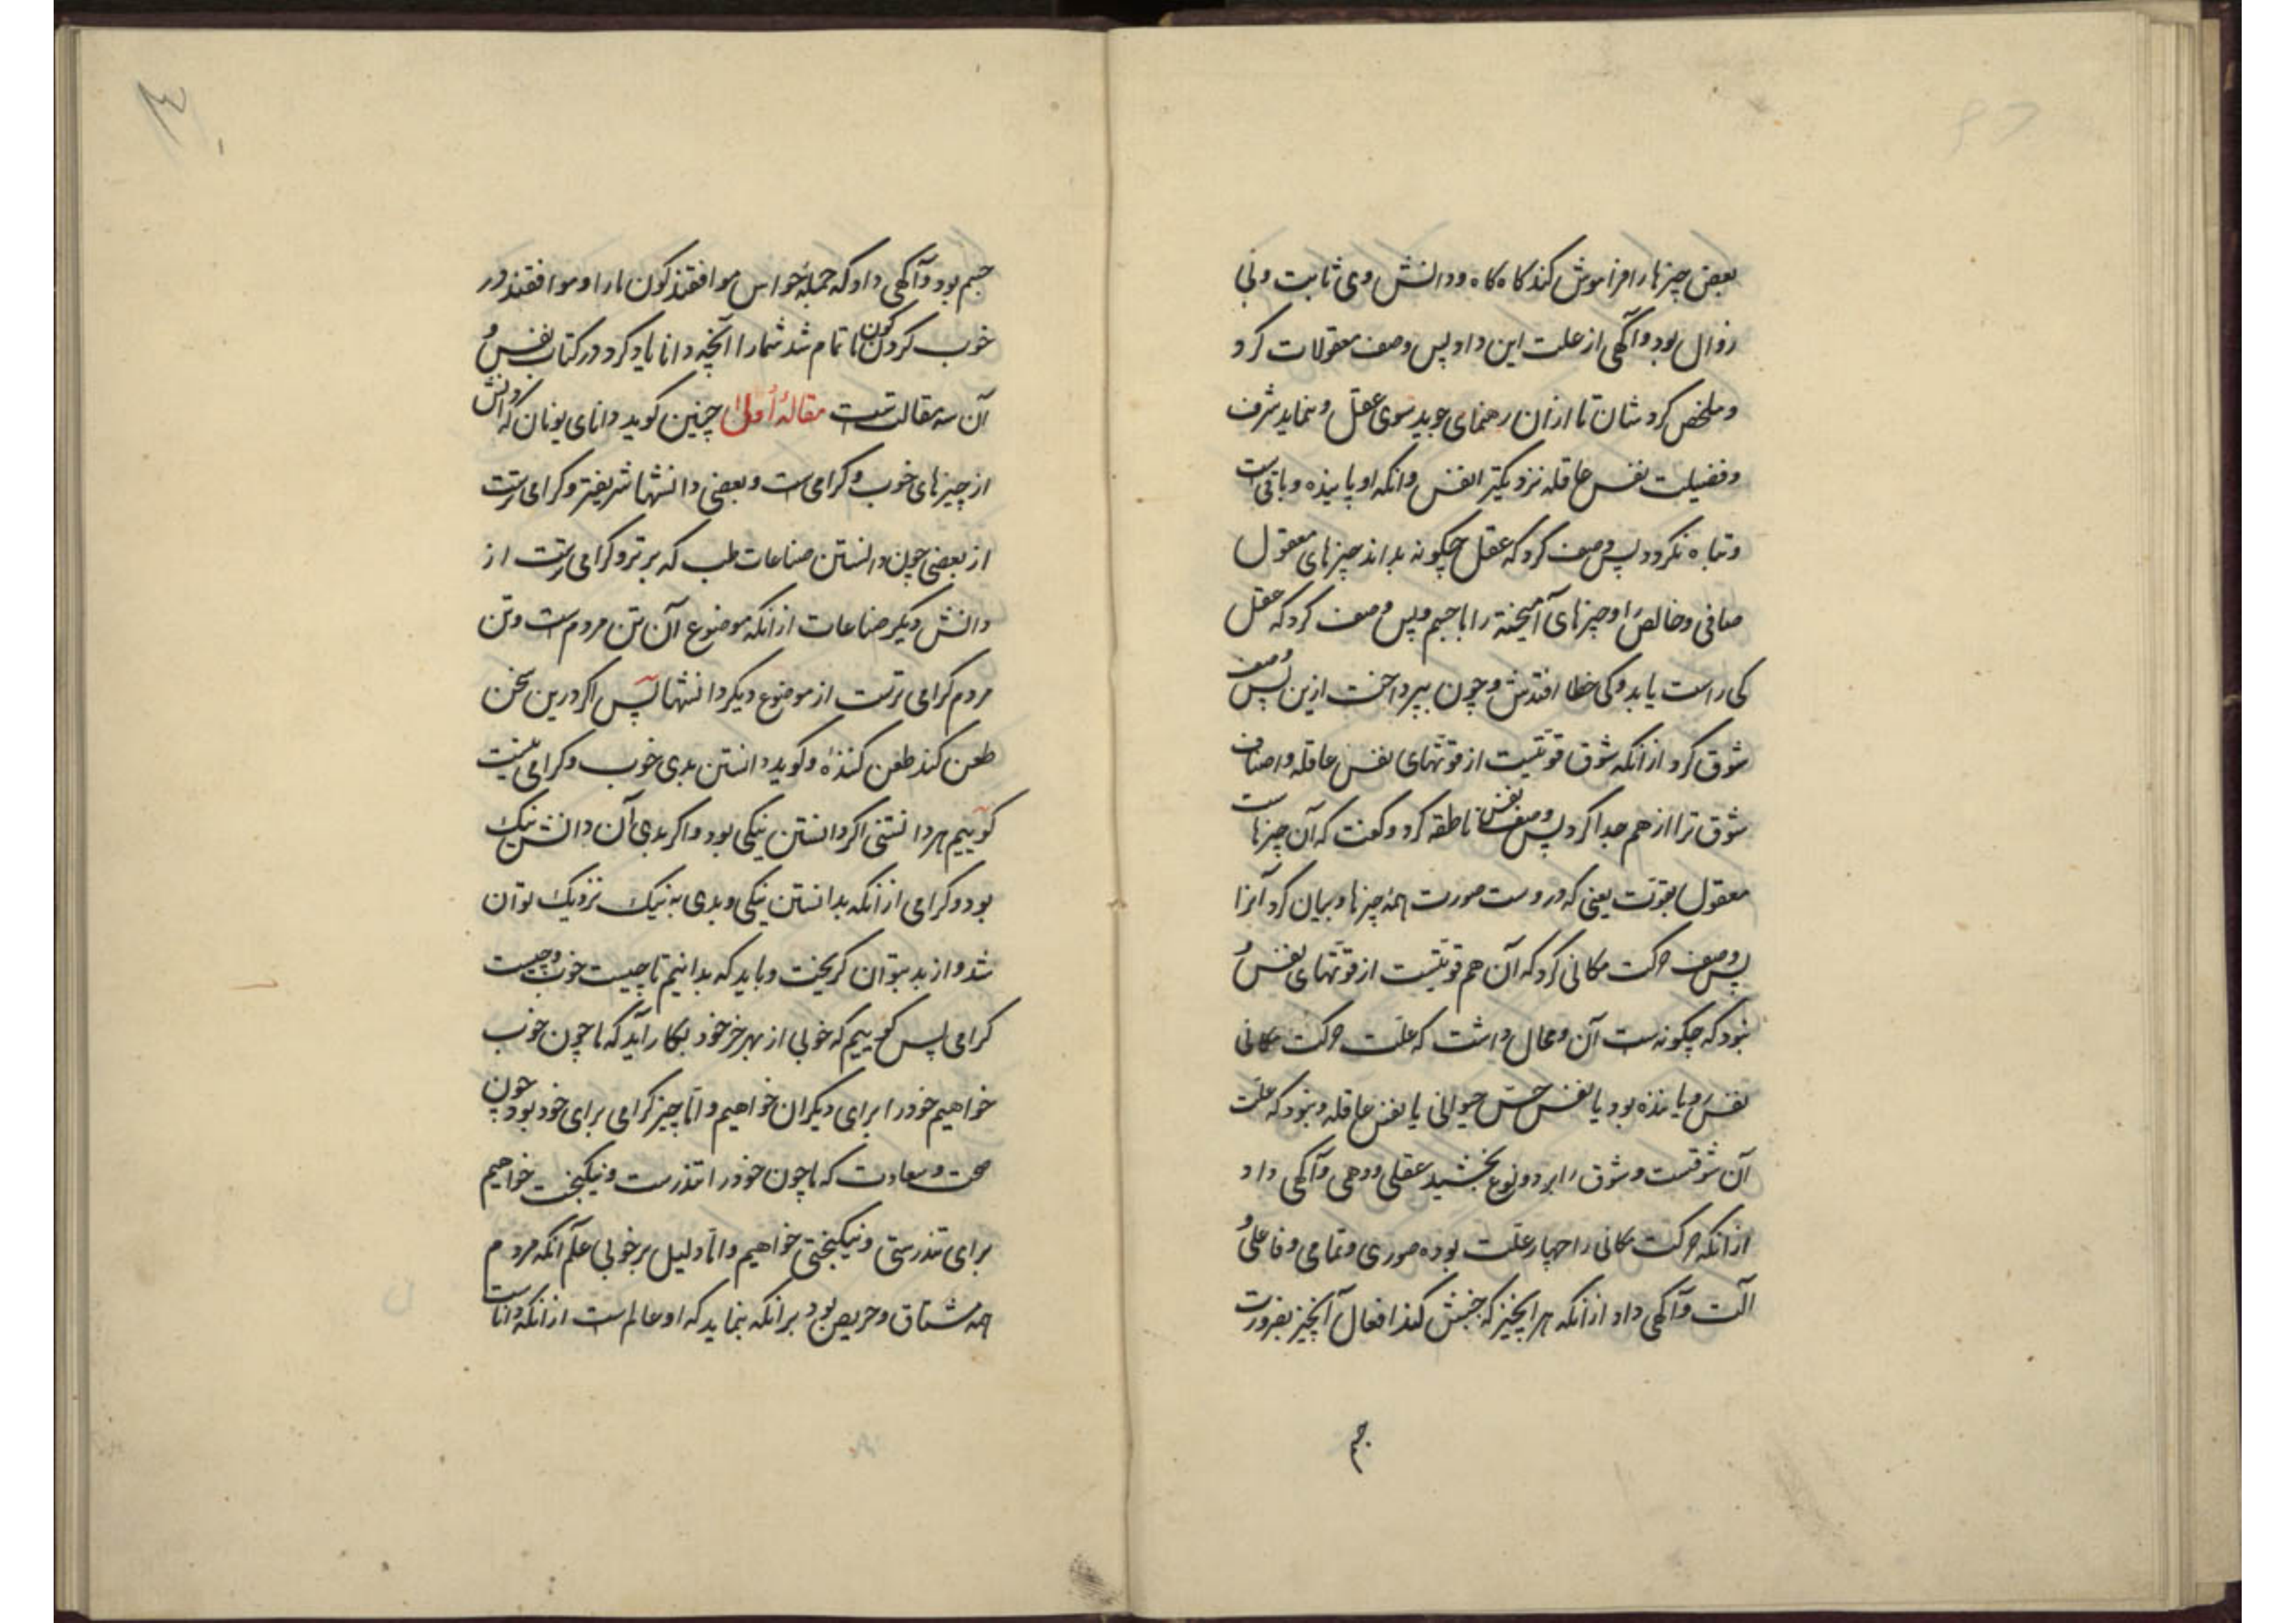 بعضی چیزها را فراموش کند کاه کاه و دانش وی ثابت و بی
زوال بود و آگهی از علت این داد پس وصف معقولات کرد
و ملخص کردشان تا ازان رهنمای جوید سوی عقل و بنماید شرف
و فضیلت نفس عاقله نزدیکتر انفس و انکه او پاینده و باقی است
و تباه نکردد پس وصف کرد که عقل چکونه بداند چیزهای معقول
صافی و خالص را و چیزهای آمیخته را با جسم و پس وصف کرد که عقل
کی راست یابد و کی خطا افتدش و چون بپرداخت ازین پس وصف
شوق کرد ازانکه شوق قوتیست از قوتهای نفس عاقله و اصناف
شوق را از هم جدا کرد پس وصف نفس ناطقه کرد و کفت که آن چیزهاست
معقول بقوت یعنی که دروست صورت همه چیزها و بیان کرد آنرا
پس وصف حرکت مکانی کرد که آن هم قوتیست از قوتهای نفس و
نمود که چکونه ست آن و محال داشت که علت حرکت مکانی
نفس رویاننده بود یا نفس حس حیوانی یا نفس عاقله و نمود که علت
آن شوقست و شوق را بر دو نوع بخشید عقلی و وهمی و آکهی داد
ازانکه حرکت مکانی را چهار علت بوده صوری و تمامی و فاعلی و
آلت و آکهی داد ازانکه هرانچیز که جنبش کند افعال آنچیز بضرورت
جسم
جسم بود و آکهی داد که جمله حواس موافقند کون ما را و موافقند در
خوب کردن کون ما تمام شد شمار آنچه دانا یاد کرد در کتاب نفس و
آن سه مقالتست مقالهٔ اولی چنین کوید دانای یونان که دانش
از چیزهای خوب و کرامی ست و بعضی دانشها شریفتر و کرامی ترست
از بعضی چون دانستن صناعات طب که برتر و کرامی ترست از
دانش دیکر صناعات ازانکه موضوع آن تن مردم ست و تن
مردم کرامی ترست از موضوع دیکر دانشها پس اکر درین سخن
طعن کند طعن کنندهٔ و کوید دانستن بدی خوب و کرامی نیست
کوییم هر دانستنی اکر دانستن نیکی بود و اکر بدی آن دانش نیک
بود و کرامی ازانکه بدانستن نیکی و بدی به نیک نزدیک توان
شد و از بد بتوان کریخت و باید که بدانیم تا چیست خوب و چیست
کرامی پس کوییم که خوبی از بهر جز خود بکار آید که ما چون خوب
خواهیم خود را برای دیکران خواهیم و اما چیز کرامی برای خود بود چون
صحت و سعادت که ما چون خود را تندرست و نیکبخت خواهیم
برای تندرستی و نیکبختی خواهیم و اما دلیل بر خوبی علم آنکه مردم
همه مشتاق و حریص بود برانکه بنماید که او عالم است ازانکه داناست